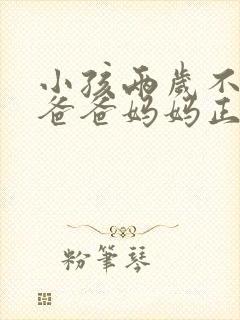 小孩兩歲不
爸爸妈妈正
粉筆琴